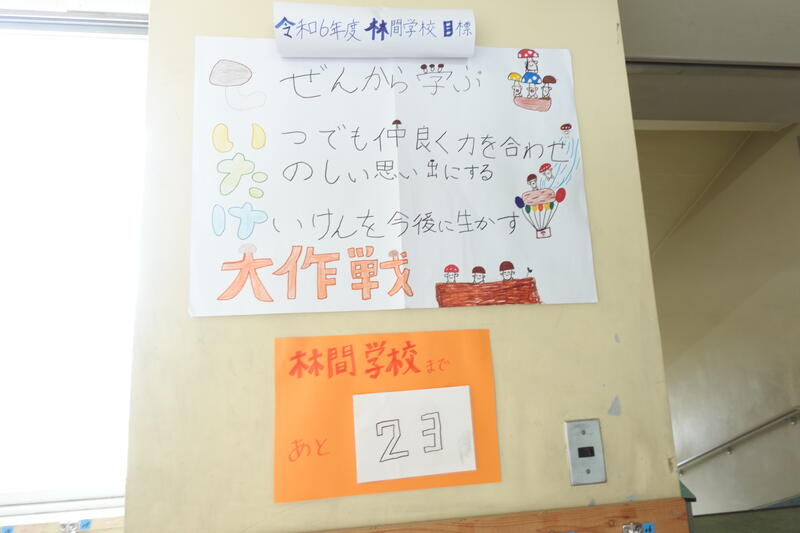 令和6年度 林間学校 目標
しぜんから学ぶ
いつでも仲良く力を合わせ
たのしい思い出にする
けいけんを今後に生かす
大作戦
林間学校まで
あと 23